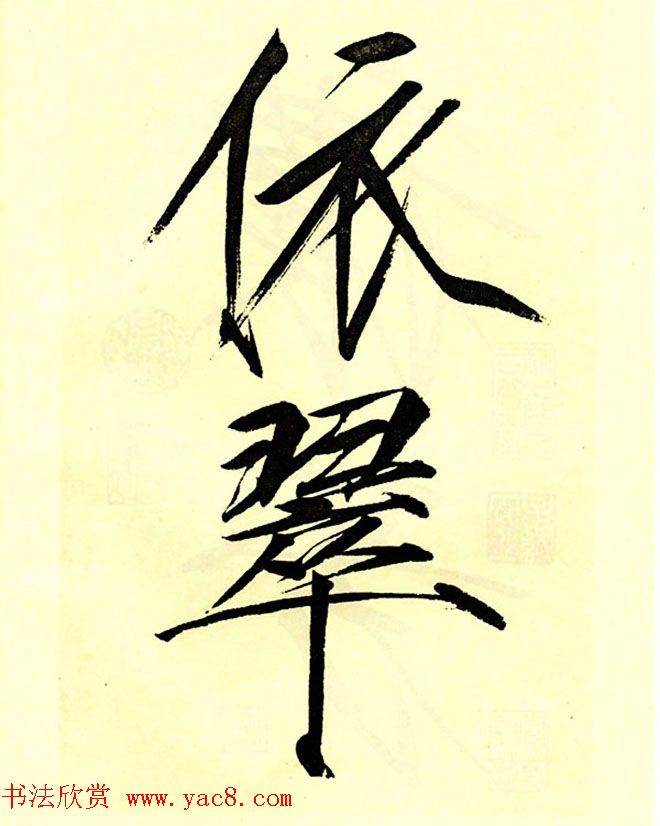 依
翠
书法欣赏 www.yac8.com